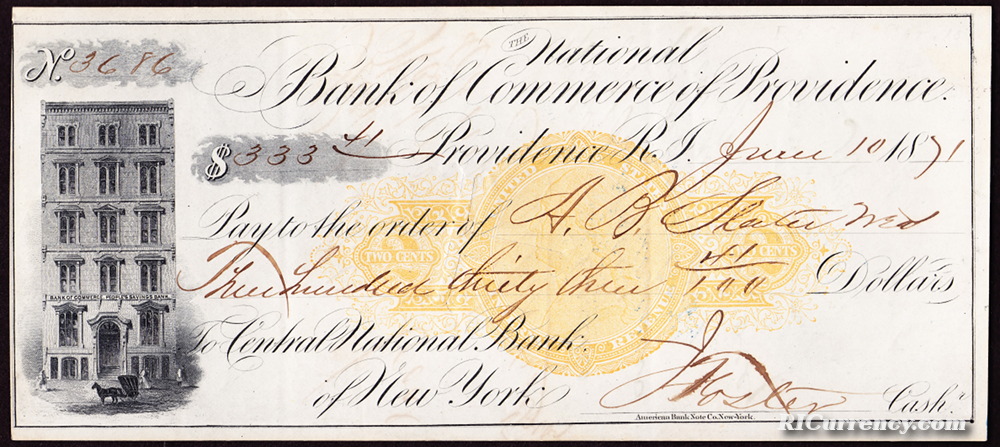 THE National
N. 3686
Bank of Commerce of Providence.
$ 333 41
Providence R.I. June 10 1871
Pay to the order of A. B. Slater
Three hundred thirty three 41/100 Dollars
TWO CENTS
UNITED
CENTS
REVENUE
BANK OF COMMERCE PEOPLE'S SAVINGS BANK
To Central National Bank
of New York.
J Foster Cash.r
American Bank Note Co. New-York.
RICurrency.com